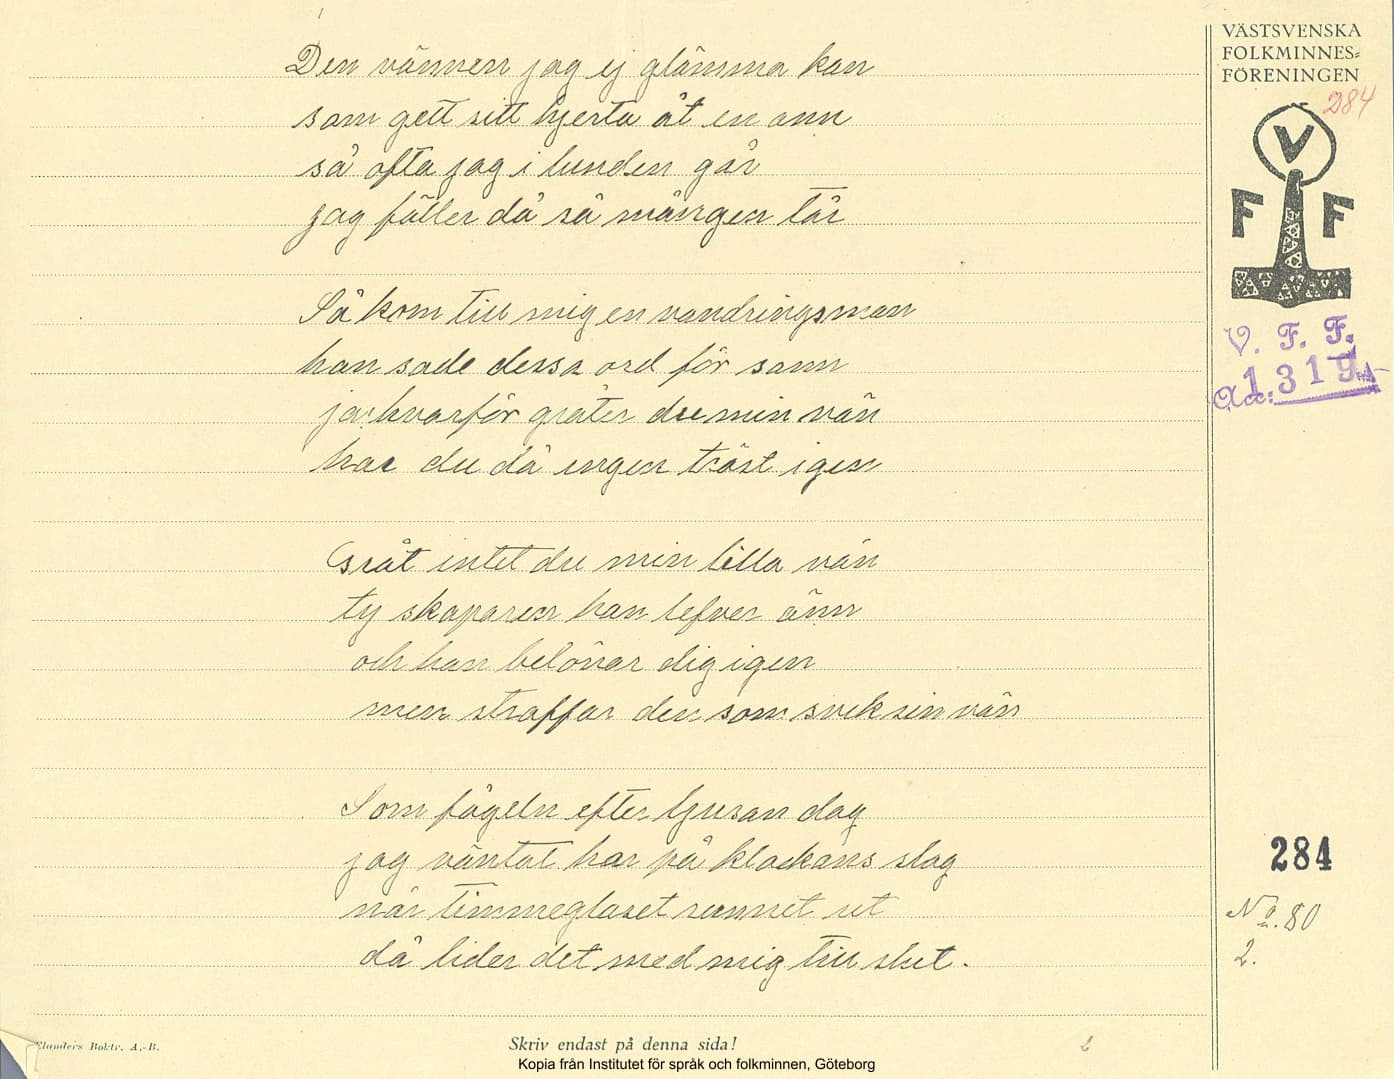 Den vännen jag ej glämma kan
som gett sitt hjerta åt en ann
så ofta jag i lunden går
jag fäller då så mången tår
Så kom till mig en vandringsman
han sade dessa ord för sann
ja hvarför gråter du min vän
har du då ingen tröst igen
Gråt intet du min lilla vän
ty skaparen han lefver änn
och han belönar dig igen
men straffar den som svek sin vän
Som fågeln efter ljusan dag
jag väntat har på klockans slag
när timmeglaset runnet ut
då lider det med mig till slut.
VÄSTSVENSKA
FOLKMINNES=
FÖRENINGEN
284
V
F F
V. F. F.
Acc: 1319
284
No. 80
2.
Elanders Boktr. A.-B.
Skriv endast på denna sida!
2
Kopia från Institutet för språk och folkminnen, Göteborg